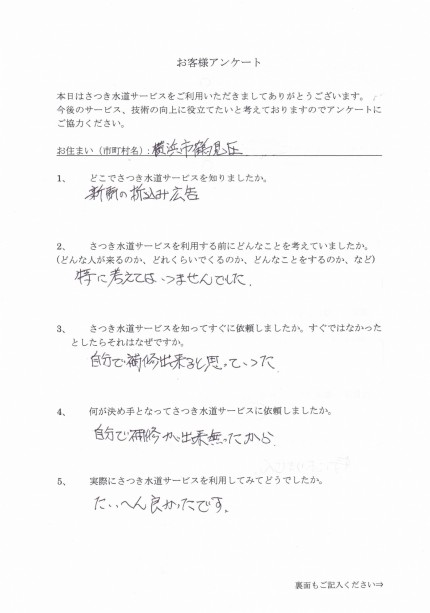 お客様アンケート
本日はさつき水道サービスをご利用いただきましてありがとうございます。
今後のサービス、技術の向上に役立てたいと考えておりますのでアンケートに
ご協力ください。
お住まい（市町村名）：横浜市鶴見区
1、 どこでさつき水道サービスを知りましたか。
新聞の折込み広告
2、 さつき水道サービスを利用する前にどんなことを考えていましたか。
(どんな人が来るのか、どれくらいでくるのか、どんなことをするのか、など)
特に考えてはいませんでした。
3、 さつき水道サービスを知ってすぐに依頼しましたか。すぐではなかった
としたらそれはなぜですか。
自分で補修出来ると思っていった
4、 何が決め手となってさつき水道サービスに依頼しましたか。
自分で補修が出来無ったから
5、 実際にさつき水道サービスを利用してみてどうでしたか。
たいへん良かったです。
裏面もご記入ください⇒